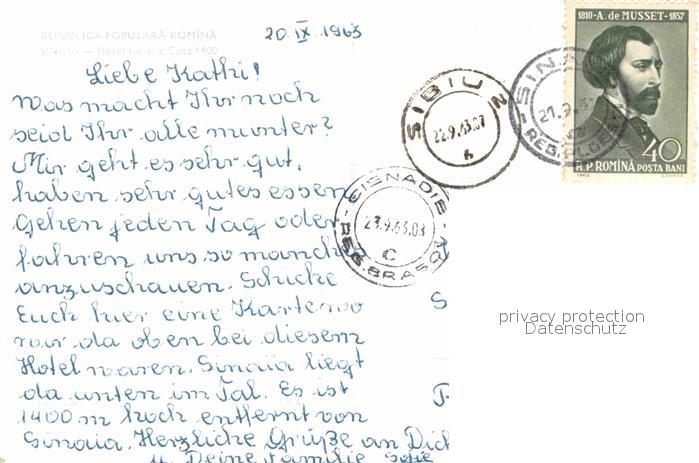 REPUBLICA POPULARĂ ROMÎNĂ
SINAIA — Hotel turistic Cota 1400
20 IX 1963
Liebe Kathi!
Was macht Ihr noch
seid Ihr alle munter?
Mir geht es sehr gut,
haben sehr gutes essen
Gehen jeden Tag oder
fahren uns so manches
anzuschauen. Schicke
Euch hier eine Karte wo
wir da oben bei diesem
Hotel waren. Sinaia liegt
da unten im Tal. Es ist
1400 m hoch entfernt von
Sinaia. Herzliche Grüße an Dich
u. Deine Familie Sofie
1810-A. de MUSSET-1857
40
R.P. ROMÎNĂ POSTA BANI
1960
SINAIA
21.9.63
REG. PLOEȘTI
SIBIU
22.9.63.07
CISNADIE
23.9.63.08
C
REG. BRASOV
privacy protection
Datenschutz